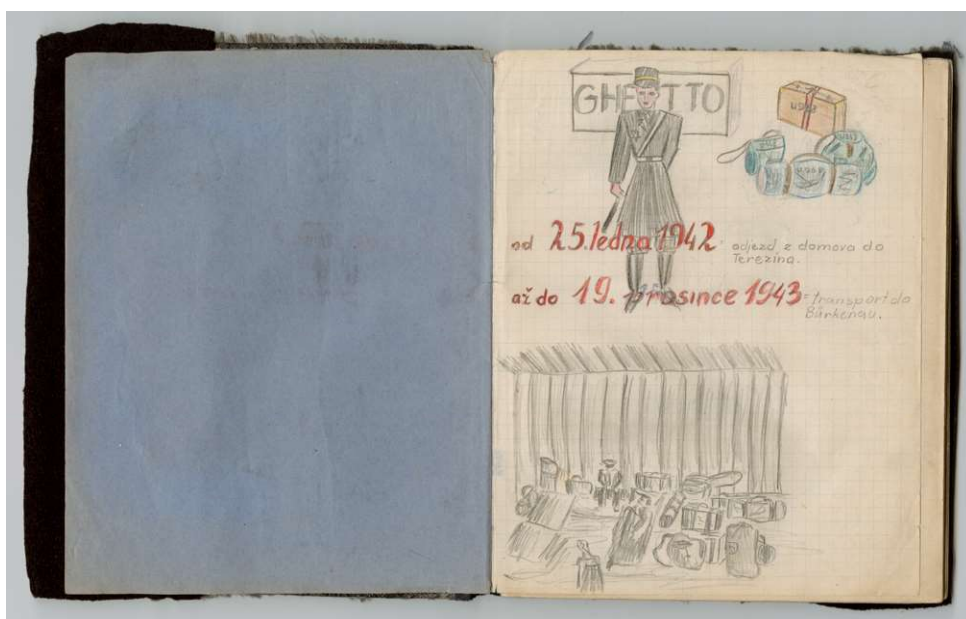 GHETTO
od 25. ledna 1942 odjezd z domova do
Terezína.
až do 19. prosince 1943 = transport do
Bürkenau.